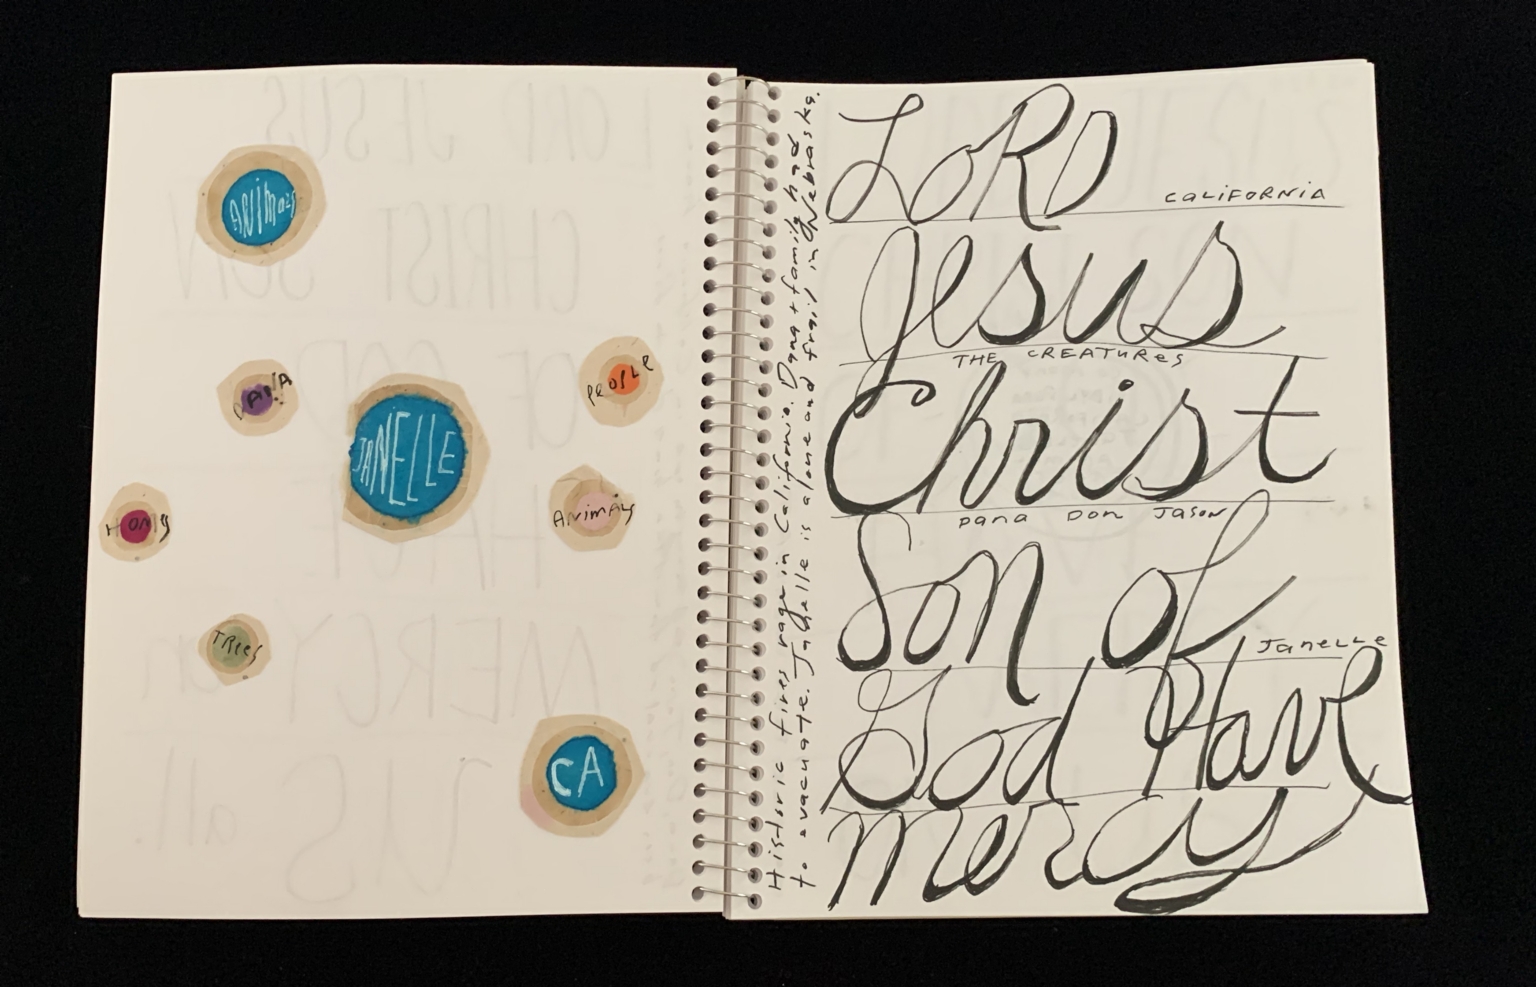 ANimals
DANA
PEOPLE
JANELLE
HOMES
ANiMALS
TREES
CA
Historic fires rage in California. Dana + family had
to evacuate. Janelle is alone and frail in Nebraska.
LORD
CALiFORNiA
Jesus
THE CREATURES
Christ
Dana Don Jason
Son of
Janelle
God Have
mercy
LORD JESUS
CHRIST SON
OF GOD
HAVE
MERCY on
US all.